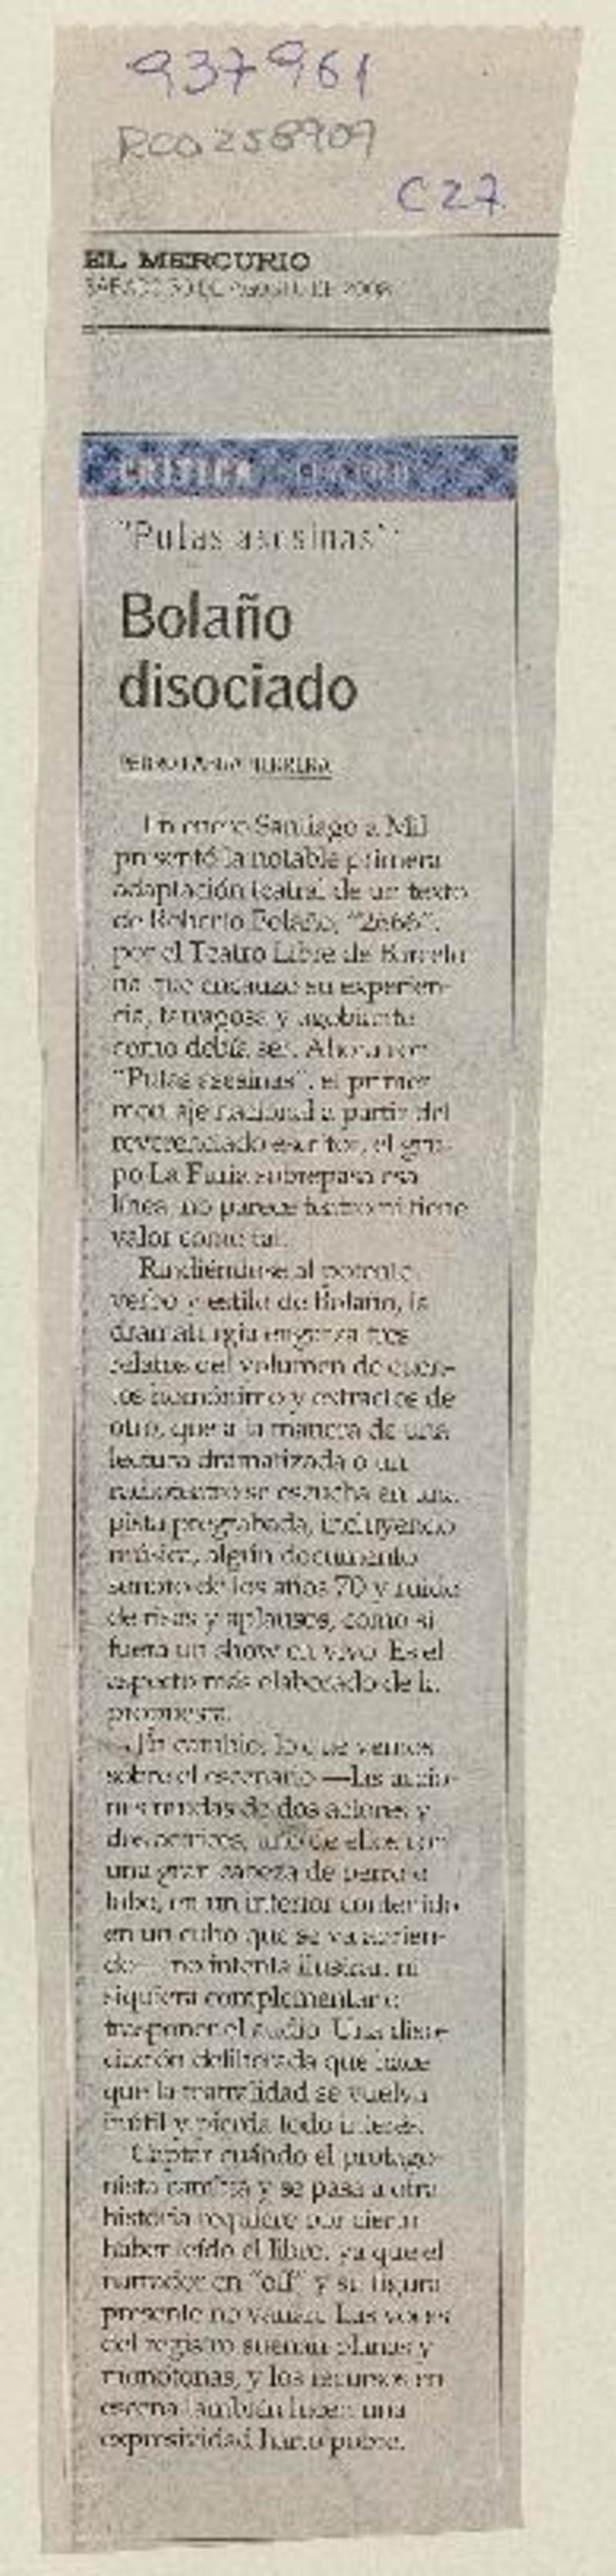 937961
RCO 258909
C 27
EL MERCURIO
SÁBADO 30 DE AGOSTO DE 2008
CRÍTICA
"Putas asesinas":
Bolaño
disociado
PEDRO LABRA HERRERA
En enero Santiago a Mil
presentó la notable primera
adaptación teatral de un texto
de Roberto Bolaño, "2666",
por el Teatro Libre de Barcelo-
na que encauzó su experien-
cia, farragosa y agobiante
como debía ser. Ahora con
"Putas asesinas", el primer
montaje nacional a partir del
reverenciado escritor, el gru-
po La Furia sobrepasa esa
línea: no parece teatro ni tiene
valor como tal.
Rindiéndose al potente
verbo y estilo de Bolaño, la
dramaturgia engarza tres
relatos del volumen de cuen-
tos homónimo y extractos de
otro, que a la manera de una
lectura dramatizada o un
radioteatro se escucha en una
pista pregrabada, incluyendo
música, algún documento
sonoro de los años 70 y ruido
de risas y aplausos, como si
fuera un show en vivo. Es el
aspecto más elaborado de la
propuesta.
En cambio, lo que vemos
sobre el escenario —las accio-
nes mudas de dos actores y
dos actrices, uno de ellos con
una gran cabeza de perro o
lobo, en un interior contenido
en un cubo que se va abrien-
do— no intenta ilustrar, ni
siquiera complementar o
trasponer el audio. Una diso-
ciación deliberada que hace
que la teatralidad se vuelva
inútil y pierda todo interés.
Captar cuándo el protago-
nista cambia y se pasa a otra
historia requiere por cierto
haber leído el libro, ya que el
narrador en "off" y su figura
presente no varían. Las voces
del registro suenan planas y
monótonas, y los recursos en
escena también lucen una
expresividad harto pobre.